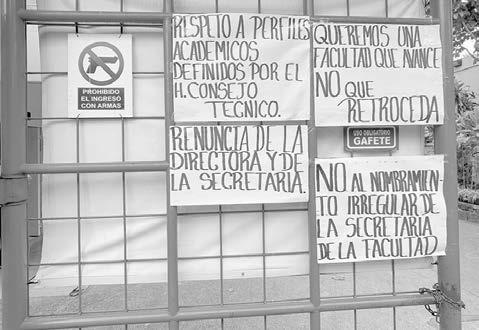 PROHIBIDO
EL INGRESO
CON ARMAS
RESPETO A PERFILES
ACADEMICOS
DEFINIDOS POR EL
H. CONSEJO
TECNICO.
RENUNCIA DE LA
DIRECTORA Y DE
LA SECRETARIA.
QUEREMOS UNA
FACULTAD QUE AVANCE
NO QUE
RETROCEDA
USO OBLIGATORIO
GAFETE
NO AL NOMBRAMIEN-
TO IRREGULAR DE
LA SECRETARIA
DE LA FACULTAD